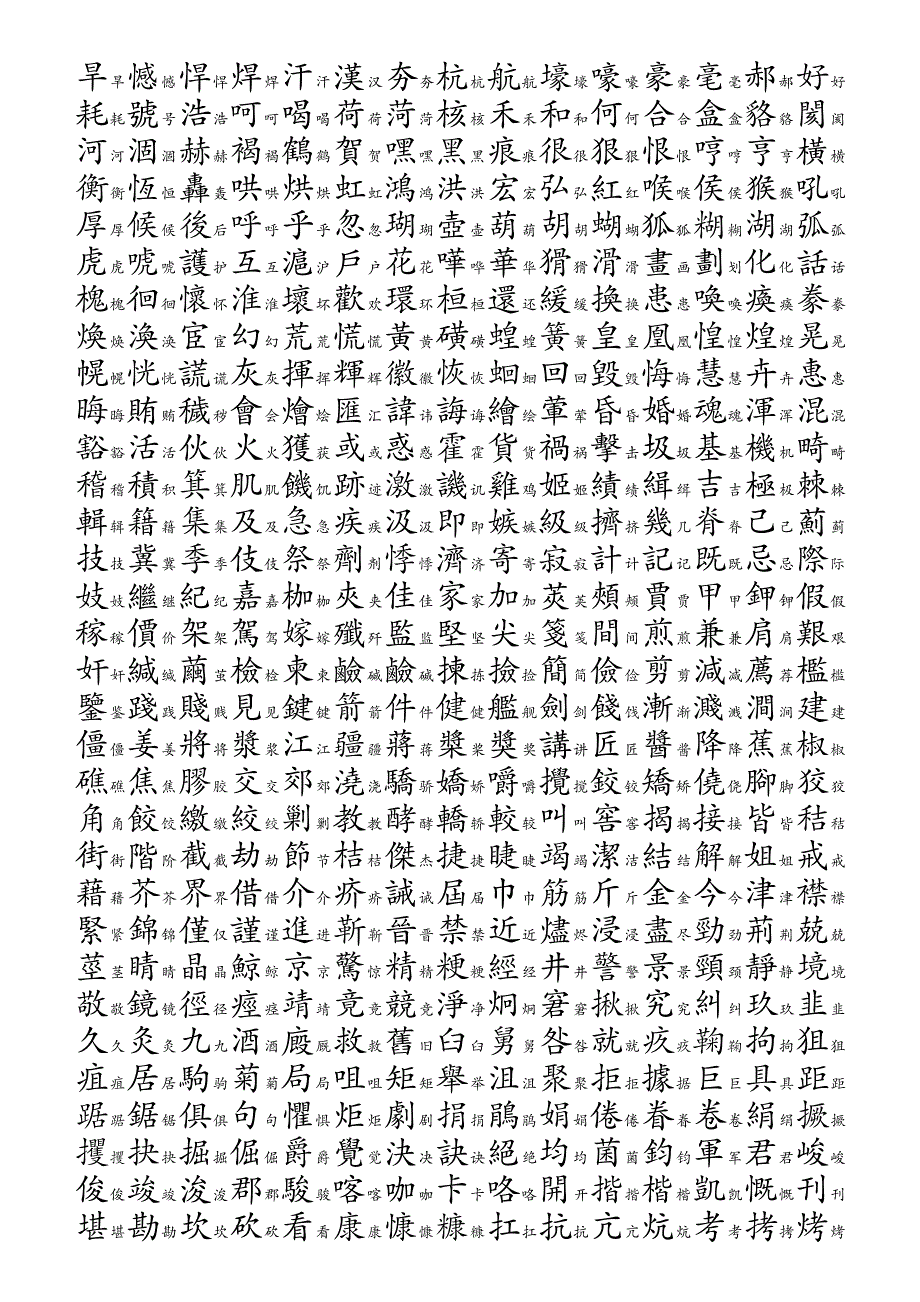 旱旱憾憾悍悍焊焊汗汗漢汉夯夯杭杭航航壕壕嚎嚎豪豪毫毫郝郝好好
耗耗號号浩浩呵呵喝喝荷荷菏菏核核禾禾和和何何合合盒盒貉貉閡阂
河河涸涸赫赫褐褐鶴鹤賀贺嘿嘿黑黑痕痕很很狠狠恨恨哼哼亨亨橫横
衡衡恆恒轟轰哄哄烘烘虹虹鴻鸿洪洪宏宏弘弘紅红喉喉侯侯猴猴吼吼
厚厚候候後后呼呼乎乎忽忽瑚瑚壺壶葫葫胡胡蝴蝴狐狐糊糊湖湖弧弧
虎虎唬唬護护互互滬沪戶户花花嘩哗華华猾猾滑滑畫画劃划化化話话
槐槐徊徊懷怀淮淮壞坏歡欢環环桓桓還还緩缓換换患患喚唤瘓痪豢豢
煥焕渙涣宦宦幻幻荒荒慌慌黃黄磺磺蝗蝗簧簧皇皇凰凰惶惶煌煌晃晃
幌幌恍恍謊谎灰灰揮挥輝辉徽徽恢恢蛔蛔回回毀毁悔悔慧慧卉卉惠惠
晦晦賄贿穢秽會会燴烩匯汇諱讳誨诲繪绘葷荤昏昏婚婚魂魂渾浑混混
豁豁活活伙伙火火獲获或或惑惑霍霍貨货禍祸擊击圾圾基基機机畸畸
稽稽積积箕箕肌肌饑饥跡迹激激譏讥雞鸡姬姬績绩緝缉吉吉極极棘棘
輯辑籍籍集集及及急急疾疾汲汲即即嫉嫉級级擠挤幾几脊脊己己薊蓟
技技冀冀季季伎伎祭祭劑剂悸悸濟济寄寄寂寂計计記记既既忌忌際际
妓妓繼继紀纪嘉嘉枷枷夾夹佳佳家家加加莢荚頰颊賈贾甲甲鉀钾假假
稼稼價价架架駕驾嫁嫁殲歼監监堅坚尖尖箋笺間间煎煎兼兼肩肩艱艰
奸奸緘缄繭茧檢检柬柬鹼碱鹼碱揀拣撿捡簡简儉俭剪剪減减薦荐檻槛
鑒鉴踐践賤贱見见鍵键箭箭件件健健艦舰劍剑餞饯漸渐濺溅澗涧建建
僵僵姜姜將将漿浆江江疆疆蔣蒋槳桨獎奖講讲匠匠醬酱降降蕉蕉椒椒
礁礁焦焦膠胶交交郊郊澆浇驕骄嬌娇嚼嚼攪搅鉸铰矯矫僥侥腳脚狡狡
角角餃饺繳缴絞绞剿剿教教酵酵轎轿較较叫叫窖窖揭揭接接皆皆秸秸
街街階阶截截劫劫節节桔桔傑杰捷捷睫睫竭竭潔洁結结解解姐姐戒戒
藉藉芥芥界界借借介介疥疥誡诫屆届巾巾筋筋斤斤金金今今津津襟襟
緊紧錦锦僅仅謹谨進进靳靳晉晋禁禁近近燼烬浸浸盡尽勁劲荊荆兢兢
莖茎睛睛晶晶鯨鲸京京驚惊精精粳粳經经井井警警景景頸颈靜静境境
敬敬鏡镜徑径痙痉靖靖竟竟競竞淨净炯炯窘窘揪揪究究糾纠玖玖韭韭
久久灸灸九九酒酒廄厩救救舊旧臼臼舅舅咎咎就就疚疚鞠鞠拘拘狙狙
疽疽居居駒驹菊菊局局咀咀矩矩舉举沮沮聚聚拒拒據据巨巨具具距距
踞踞鋸锯俱俱句句懼惧炬炬劇剧捐捐鵑鹃娟娟倦倦眷眷卷卷絹绢撅撅
攫攫抉抉掘掘倔倔爵爵覺觉決决訣诀絕绝均均菌菌鈞钧軍军君君峻峻
俊俊竣竣浚浚郡郡駿骏喀喀咖咖卡卡咯咯開开揩揩楷楷凱凯慨慨刊刊
堪堪勘勘坎坎砍砍看看康康慷慷糠糠扛扛抗抗亢亢炕炕考考拷拷烤烤